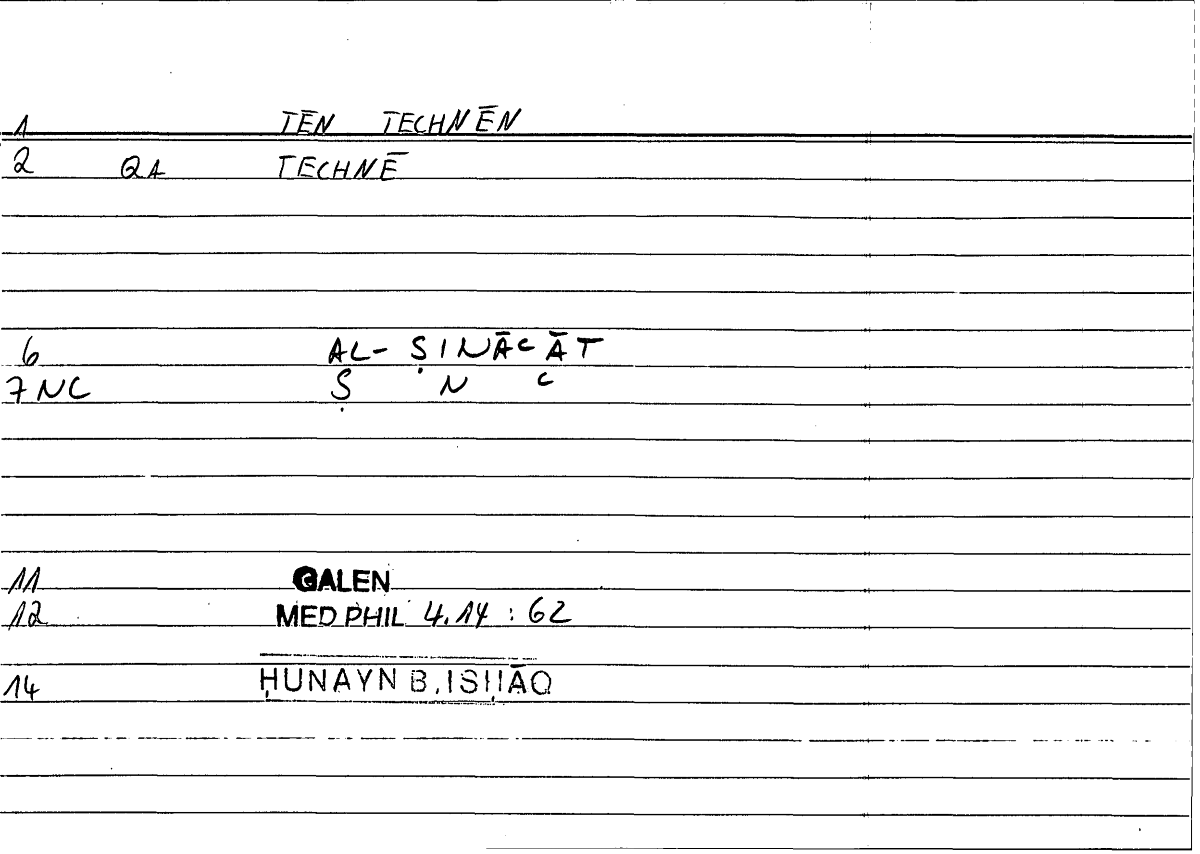 1 TĒN TECHNĒN
2 QA TECHNĒ
6 AL-ṢINĀCĀT
7 NC Ṣ N C
11 GALEN
12 MED PHIL 4.14 : 62
14 ḤUNAYN B. ISḤĀQ